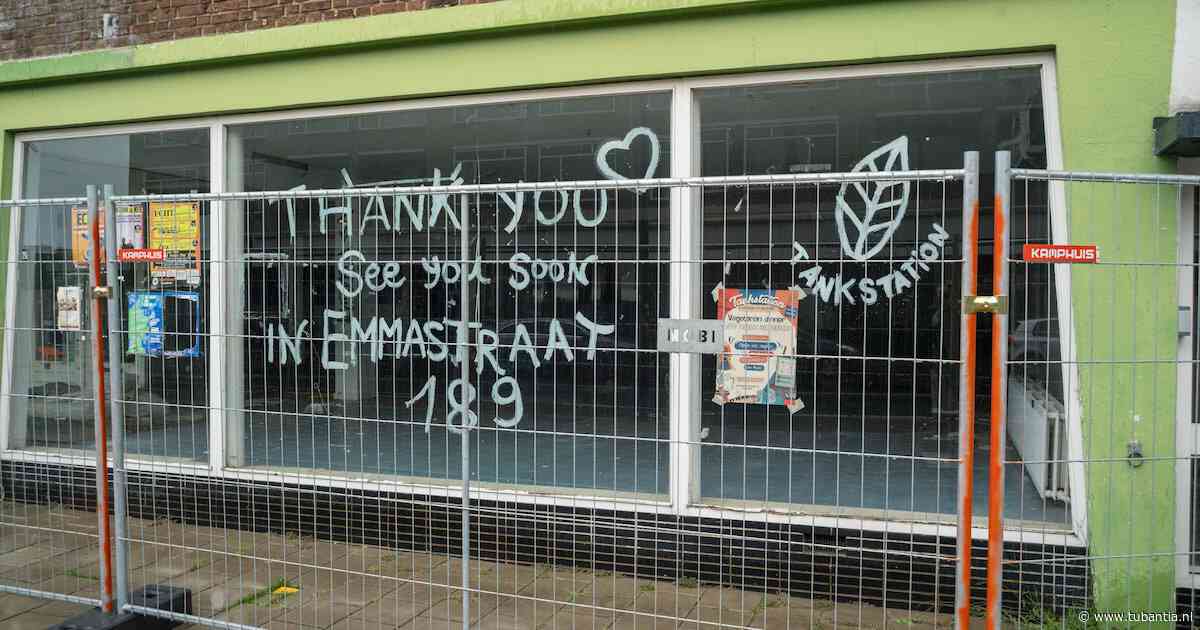 THANK YOU
See you soon
IN EMMASTRAAT
189
TANKSTATION
KAMPHUIS
KAMPHUIS
NOBI
Tankstation
Vegetarian dinner
© www.tubantia.nl